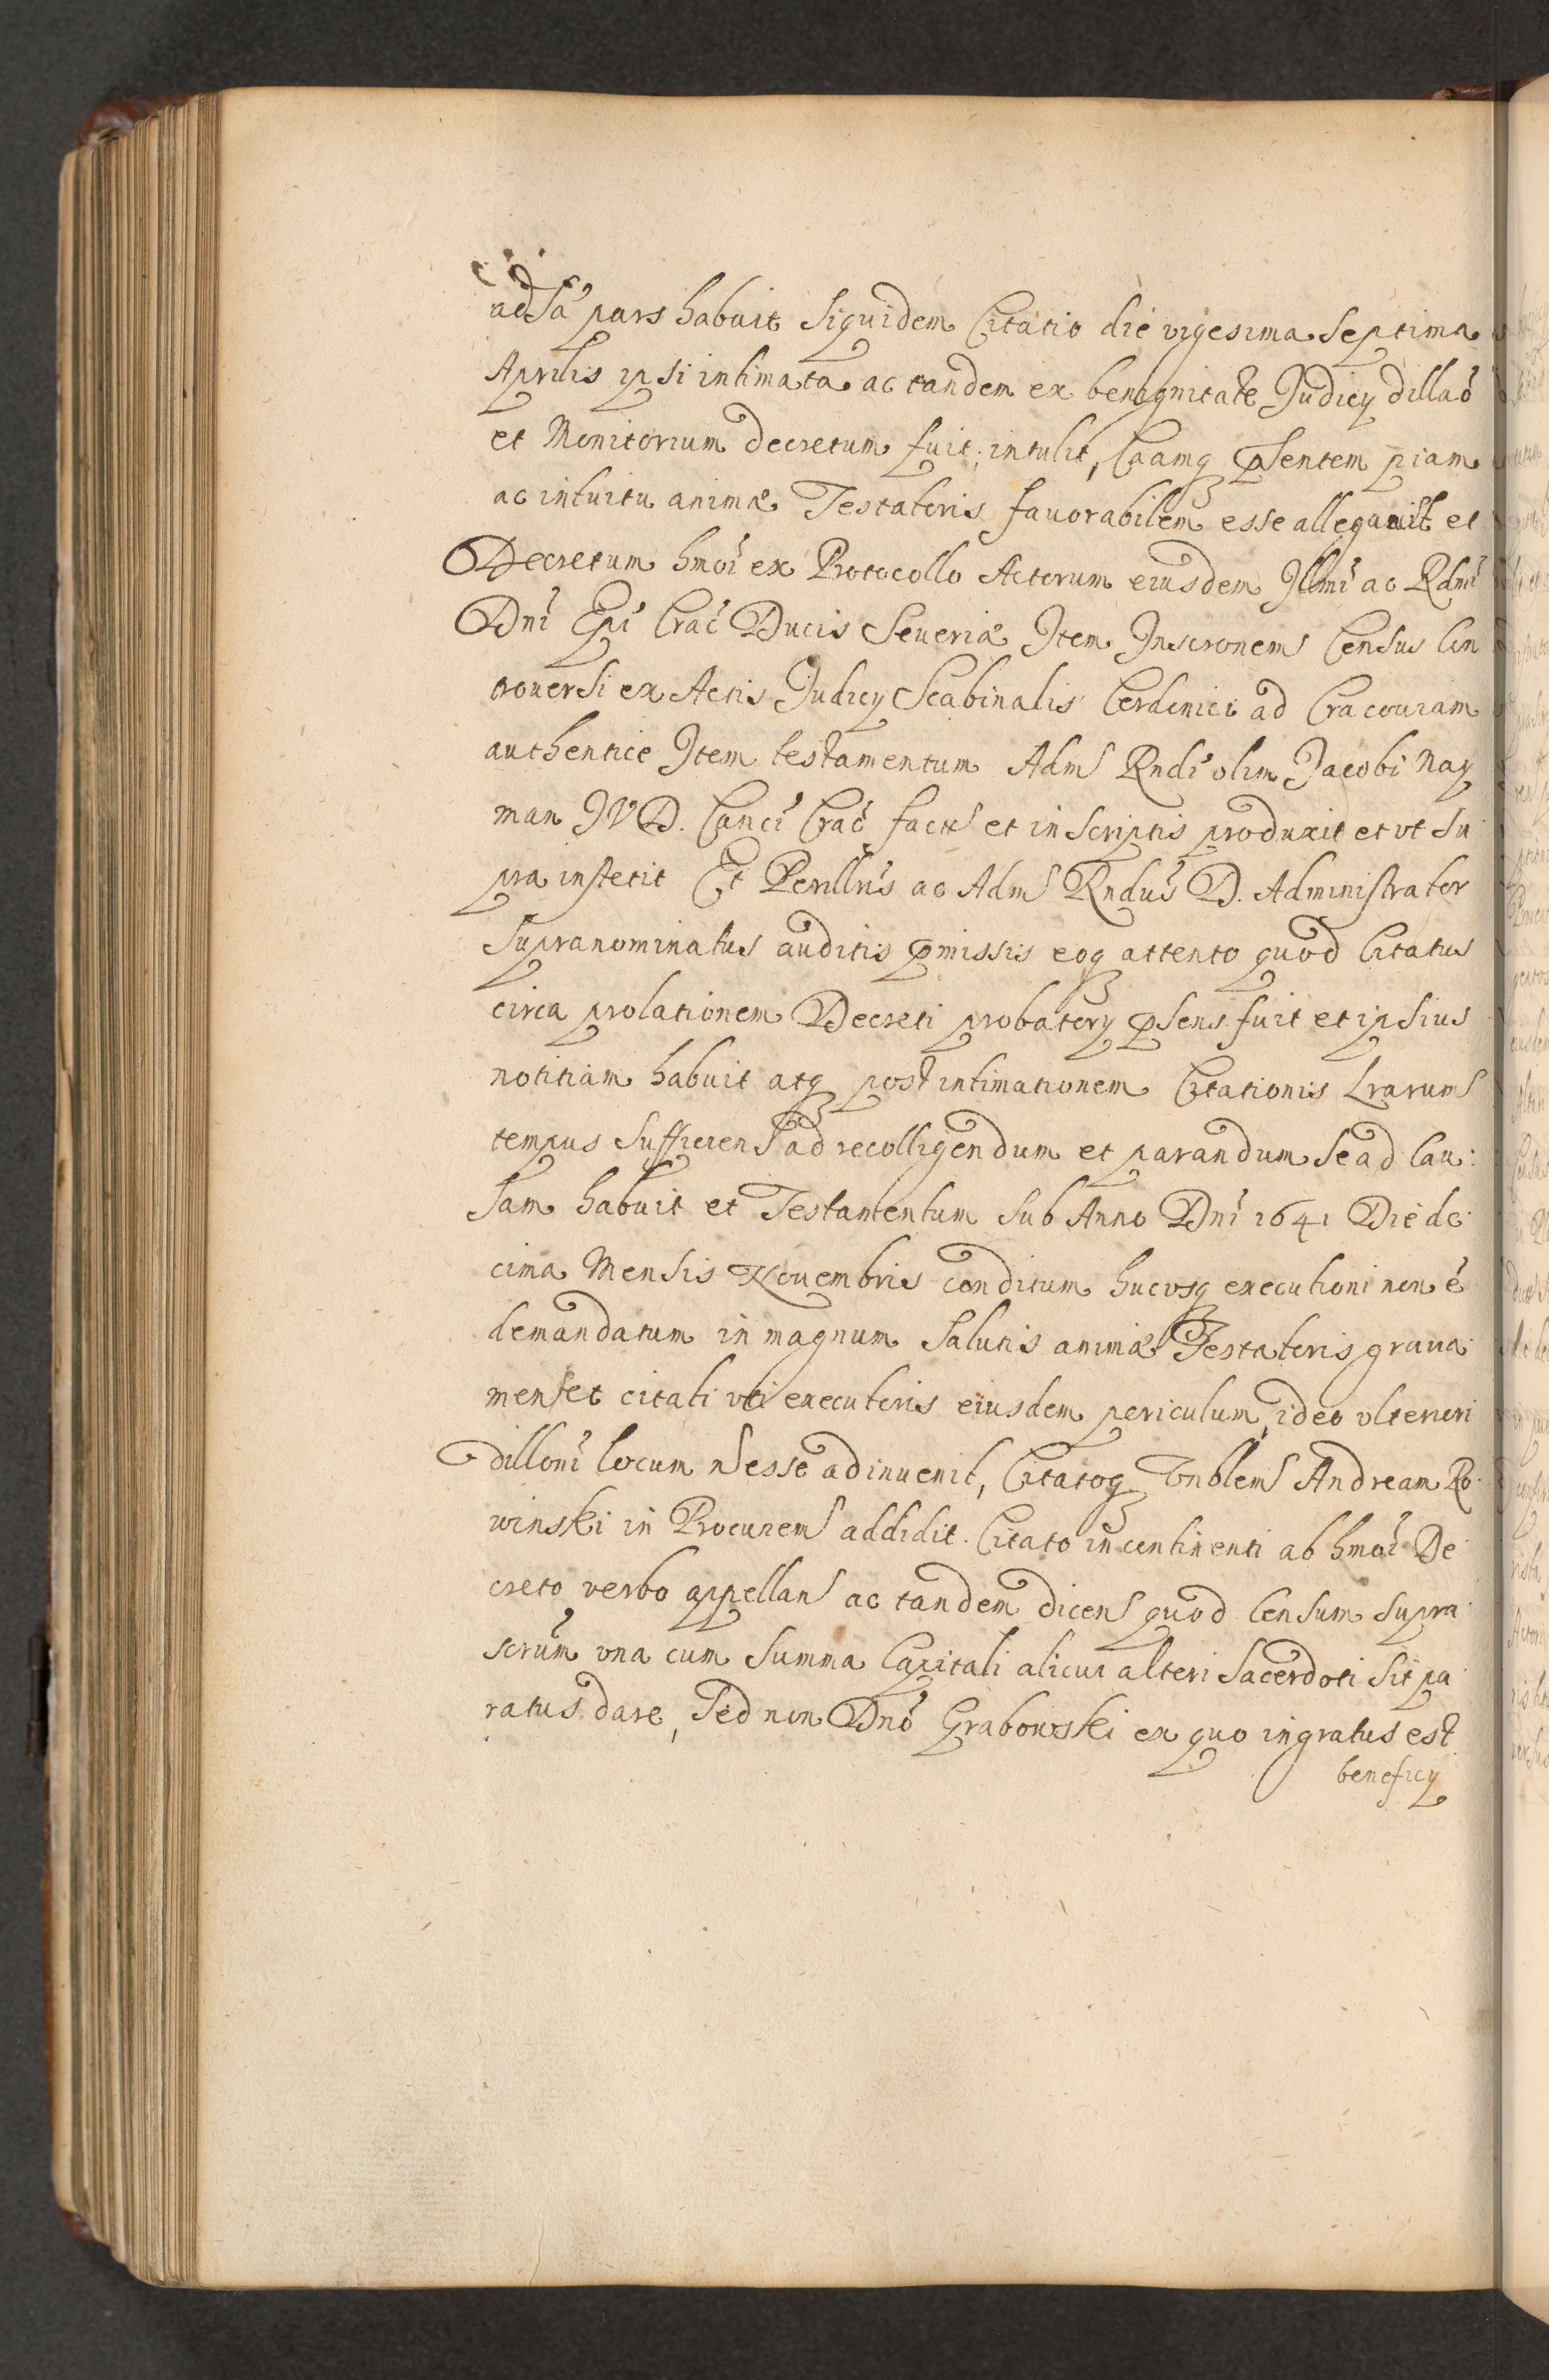 adsa pars habuit siquidem Citatio die vigesima septima
Aprilis ipsi intimata ac tandem ex benignitate Judicy dillaō
et Monitorium decretum fuit, intulit, Caamq pͬsentem piam
ac intuitu animæ Testatoris fauorabilem esse allegauit et
Decretum hmoī ex Protocollo Actorum eiusdem Illmī ac Rdmī
Dnī Epī Cracͥ Ducis Seueriæ Item Inscronem Census Con
trouersi ex Actis Judicy Scabinalis Cerdonici ad Cracouiam
authentice Item testamentum Adm Rndī olim Jacobi Nay
man JVD. Cancī Cracͥ factū et in scriptis produxit et vt su
pra institit Et Perillris ac Adm Rndus D. Administrator
supranominatus auditis pͬmissis eoq attento quod Citatus
circa prolationem Decreti probatory pͬsens fuit et ipsius
notitiam habuit atq post intimationem Citationis Lrarum
tempus sufficiens ad recolligendum et parandum se ad Cau:
sam habuit et Testamentum sub Anno Dnī 1641 Die de
cima Mensis Nouembris conditum hucvsq executioni non ē
demandatum in magnum salutis animæ Testatoris graua
men et citati vti executoris eiusdem periculum, ideo vlteriori
dillonī locum n esse adinuenit, Citatoq Gnblem Andream Ro
winski in Procurem addidit. Citato in continenti ab hmoī De
creto verbo appellan ac tandem dicen quod Censum supra
scrūm vna cum summa Capitali alicui alteri Sacerdoti sit pa
ratus dare, sed non Dnō Grabowski ex quo ingratus est
beneficy